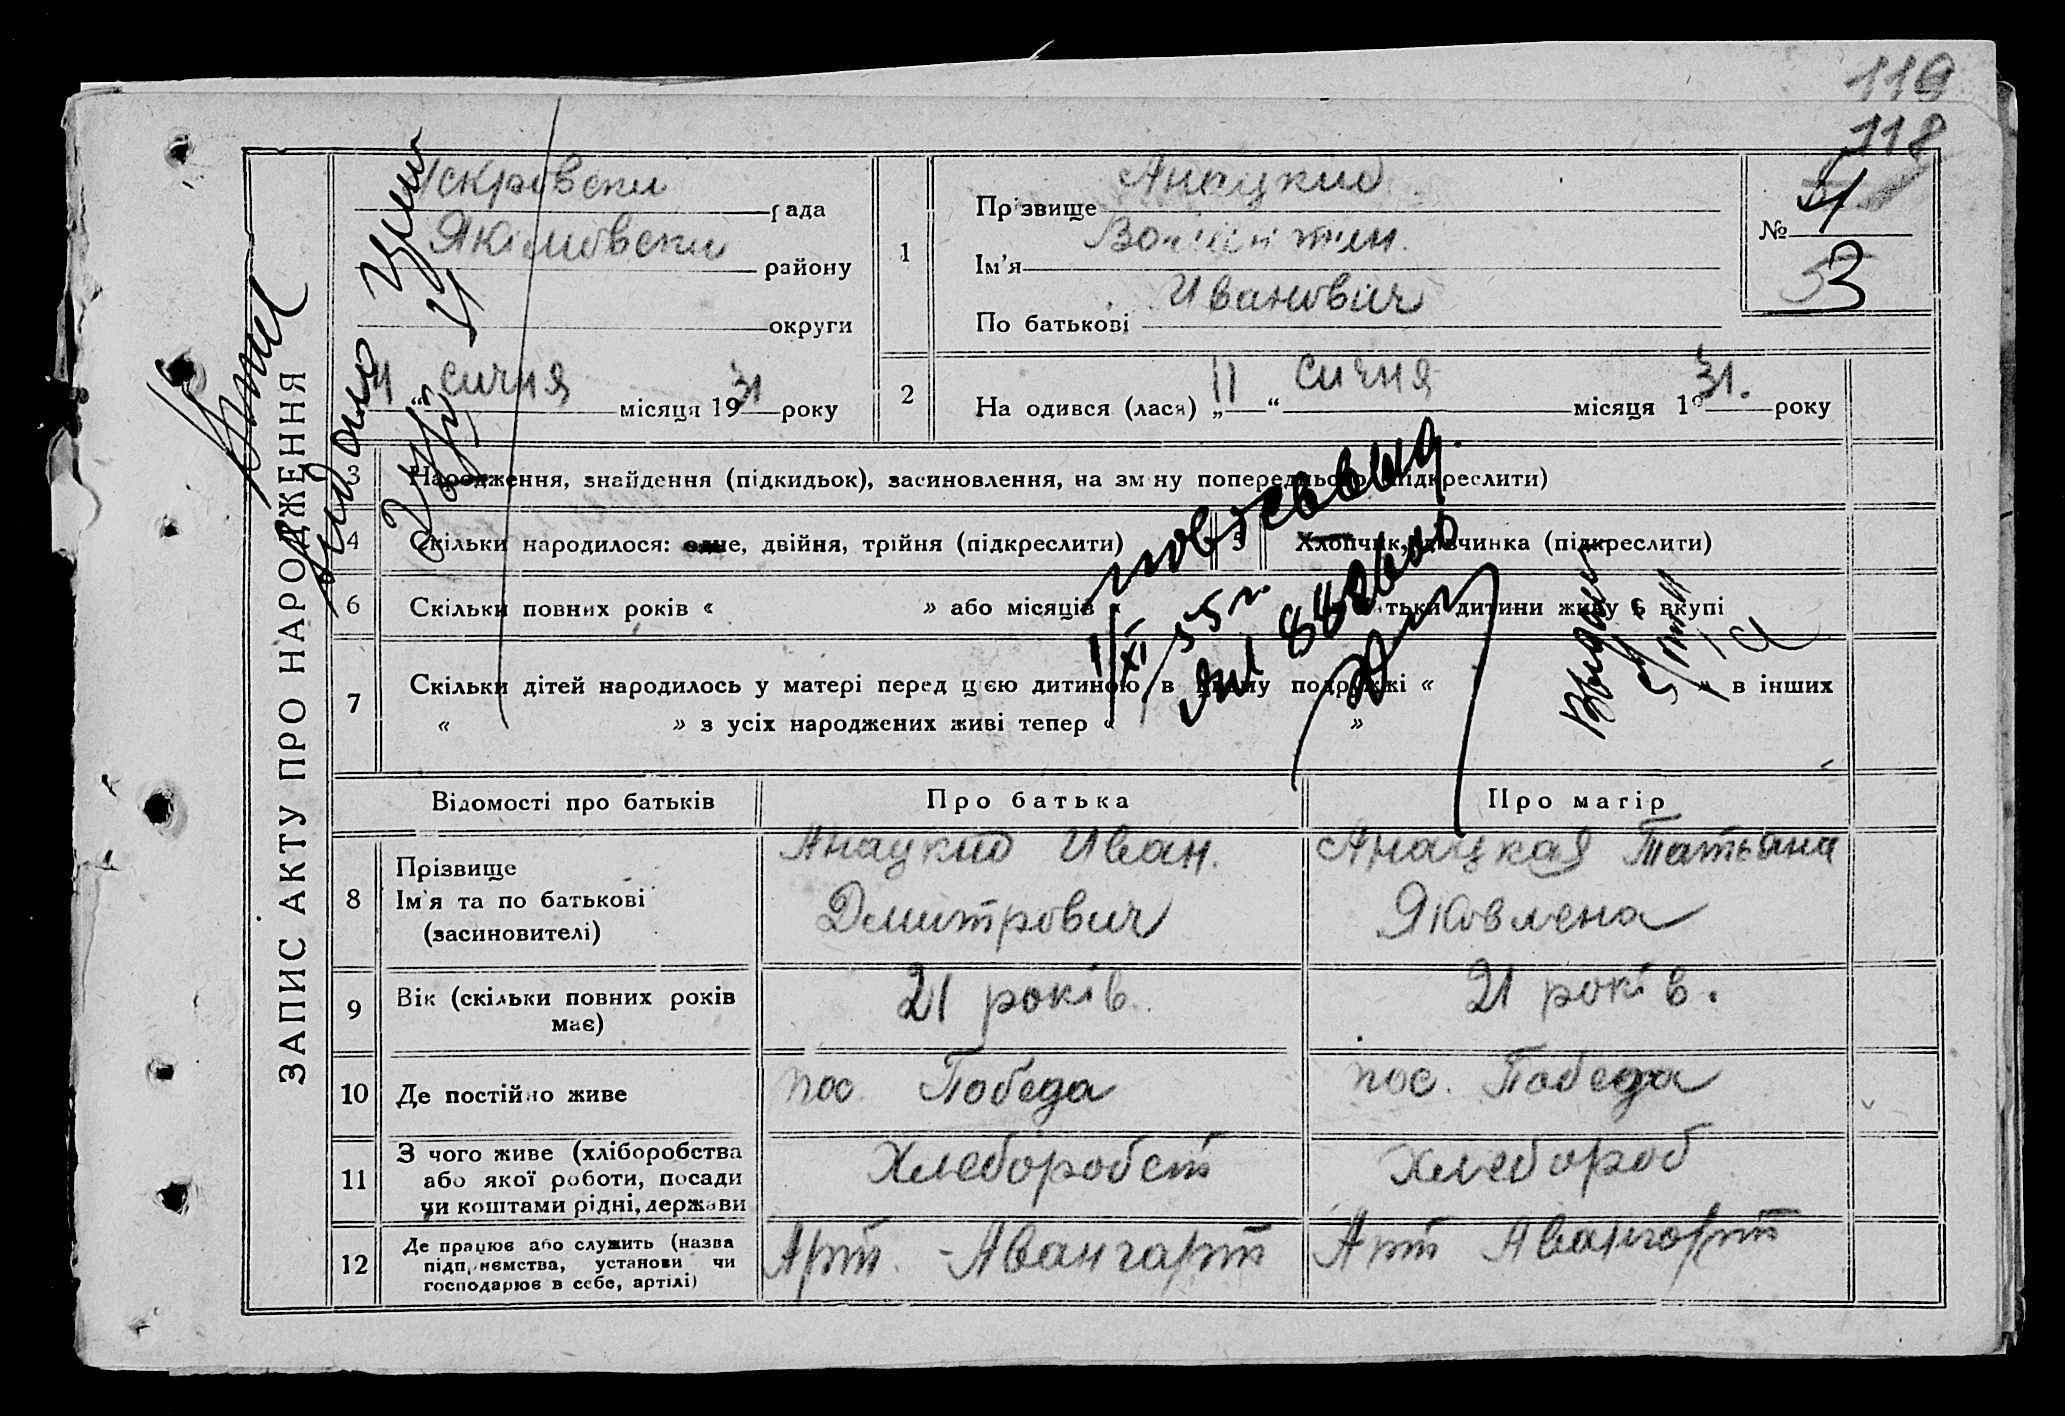 119
118
ЗАПИС АКТУ ПРО НАРОДЖЕННЯ
Іскрівски рада
Якімовски району
округи
11 “ сичня місяця 1931 року
1
Прізвище Анацкий
Ім’я
По батькові Иванович
№ 4
3
2
На одився (лася) „ 11 “ сичня місяця 1931. року
3 Народження, знайдення (підкидьок), засиновлення, на зм ну попереднього (підкреслити)
4 Скільки народилося: одне, двійня, трійня (підкреслити)
5 Хлопчик, дівчинка (підкреслити)
6 Скільки повних років « » або місяців « тьки дитини живу ь вкупі
7 Скільки дітей народилось у матері перед цією дитиною в цьому подружжі « » в інших
« » з усіх народжених живі тепер « »
повторный
1/XI 55 г.
Відомості про батьків
Про батька
Про матір
8 Прізвище
Ім’я та по батькові
(засиновителі)
Анацкий Иван.
Дмитрович
Анацкая Татьяна
Яковлена
9 Вік (скільки повних років
має)
21 років.
21 років.
10 Де постійно живе
пос. Победа
пос. Победа
11 З чого живе (хліборобства
або якої роботи, посади
чи коштами рідні, держави
Хлеборобст
Хлебороб
12 Де працює або служить (назва
підп,иємства, установи чи
господарює в себе, артілі)
Арт. - Авангарт
Арт Авангорт